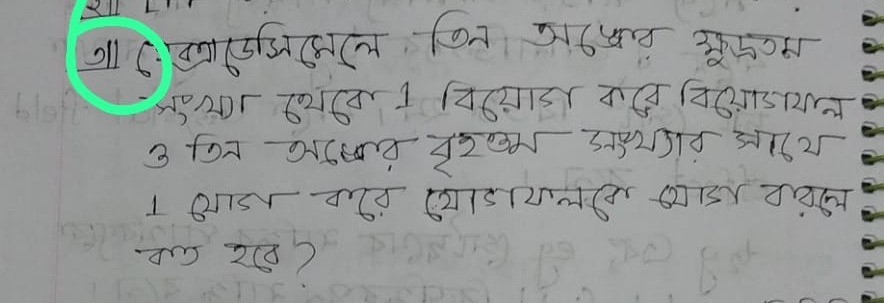 ২॥
৩॥ হেক্সাডেসিমেলে তিন অঙ্কের ক্ষুদ্রতম
সংখ্যা থেকে 1 বিয়োগ করে বিয়োগফল
ও তিন অঙ্কের বৃহত্তম সংখ্যার সাথে
1 যোগ করে যোগফলকে যোগ করলে
কত হবে?